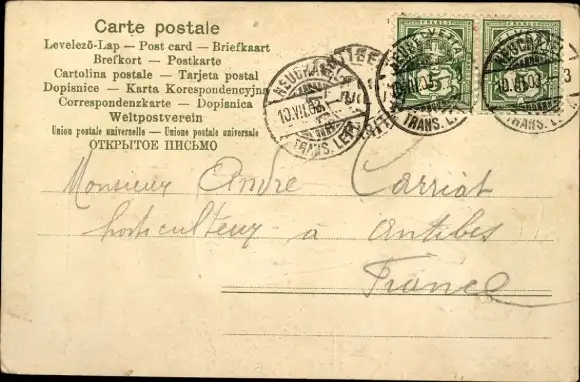 Carte postale
Levelező-Lap — Post card — Briefkaart
Brefkort — Postkarte
Cartolina postale — Tarjeta postal
Dopisnice - Karta Korespondencyjna
Correspondenzkarte — Dopisnica
Weltpostverein
Union postale universelle — Unione postale universale
ОТКРЫТОЕ ПИСЬМО
FRANCO
FRANCO
TRANS. LETT
10.VII.03
TRANS. L
10.VII.03 — 3
TRANS. L
Monsieur André Carriat
horticulteur à Antibes
France